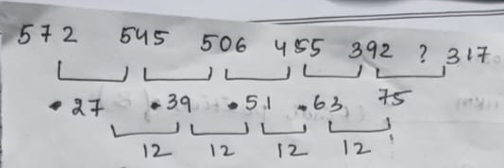 572 545 506 455 392 ? 317
27 39 51 63 75
12 12 12 12